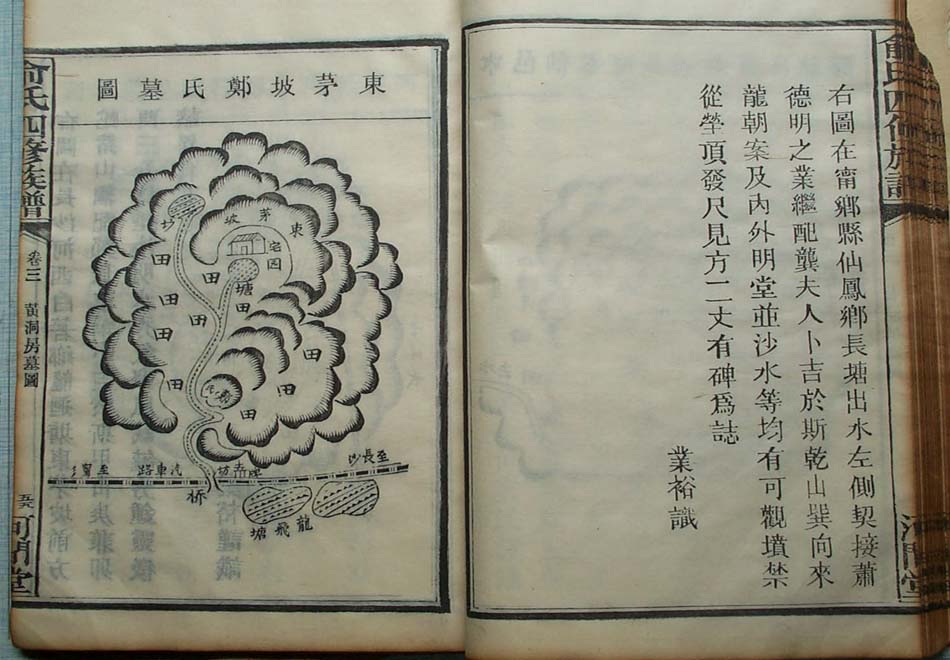 右圖在甯鄉縣仙鳳鄉長塘出水左側契接蕭
德明之業繼配龔夫人卜吉於斯乾山巽向來
龍朝案及內外明堂並沙水等均有可觀墳禁
從塋頂發尺見方二丈有碑爲誌
業裕識
東茅坡鄭氏墓圖
東茅坡
宅園
塘
田
田
田
田
田
田
田
田
田
至長沙
汽車路
至寗
桥
龍飛塘
俞氏四修族譜
卷三
黃洞房墓圖
五六
河間堂